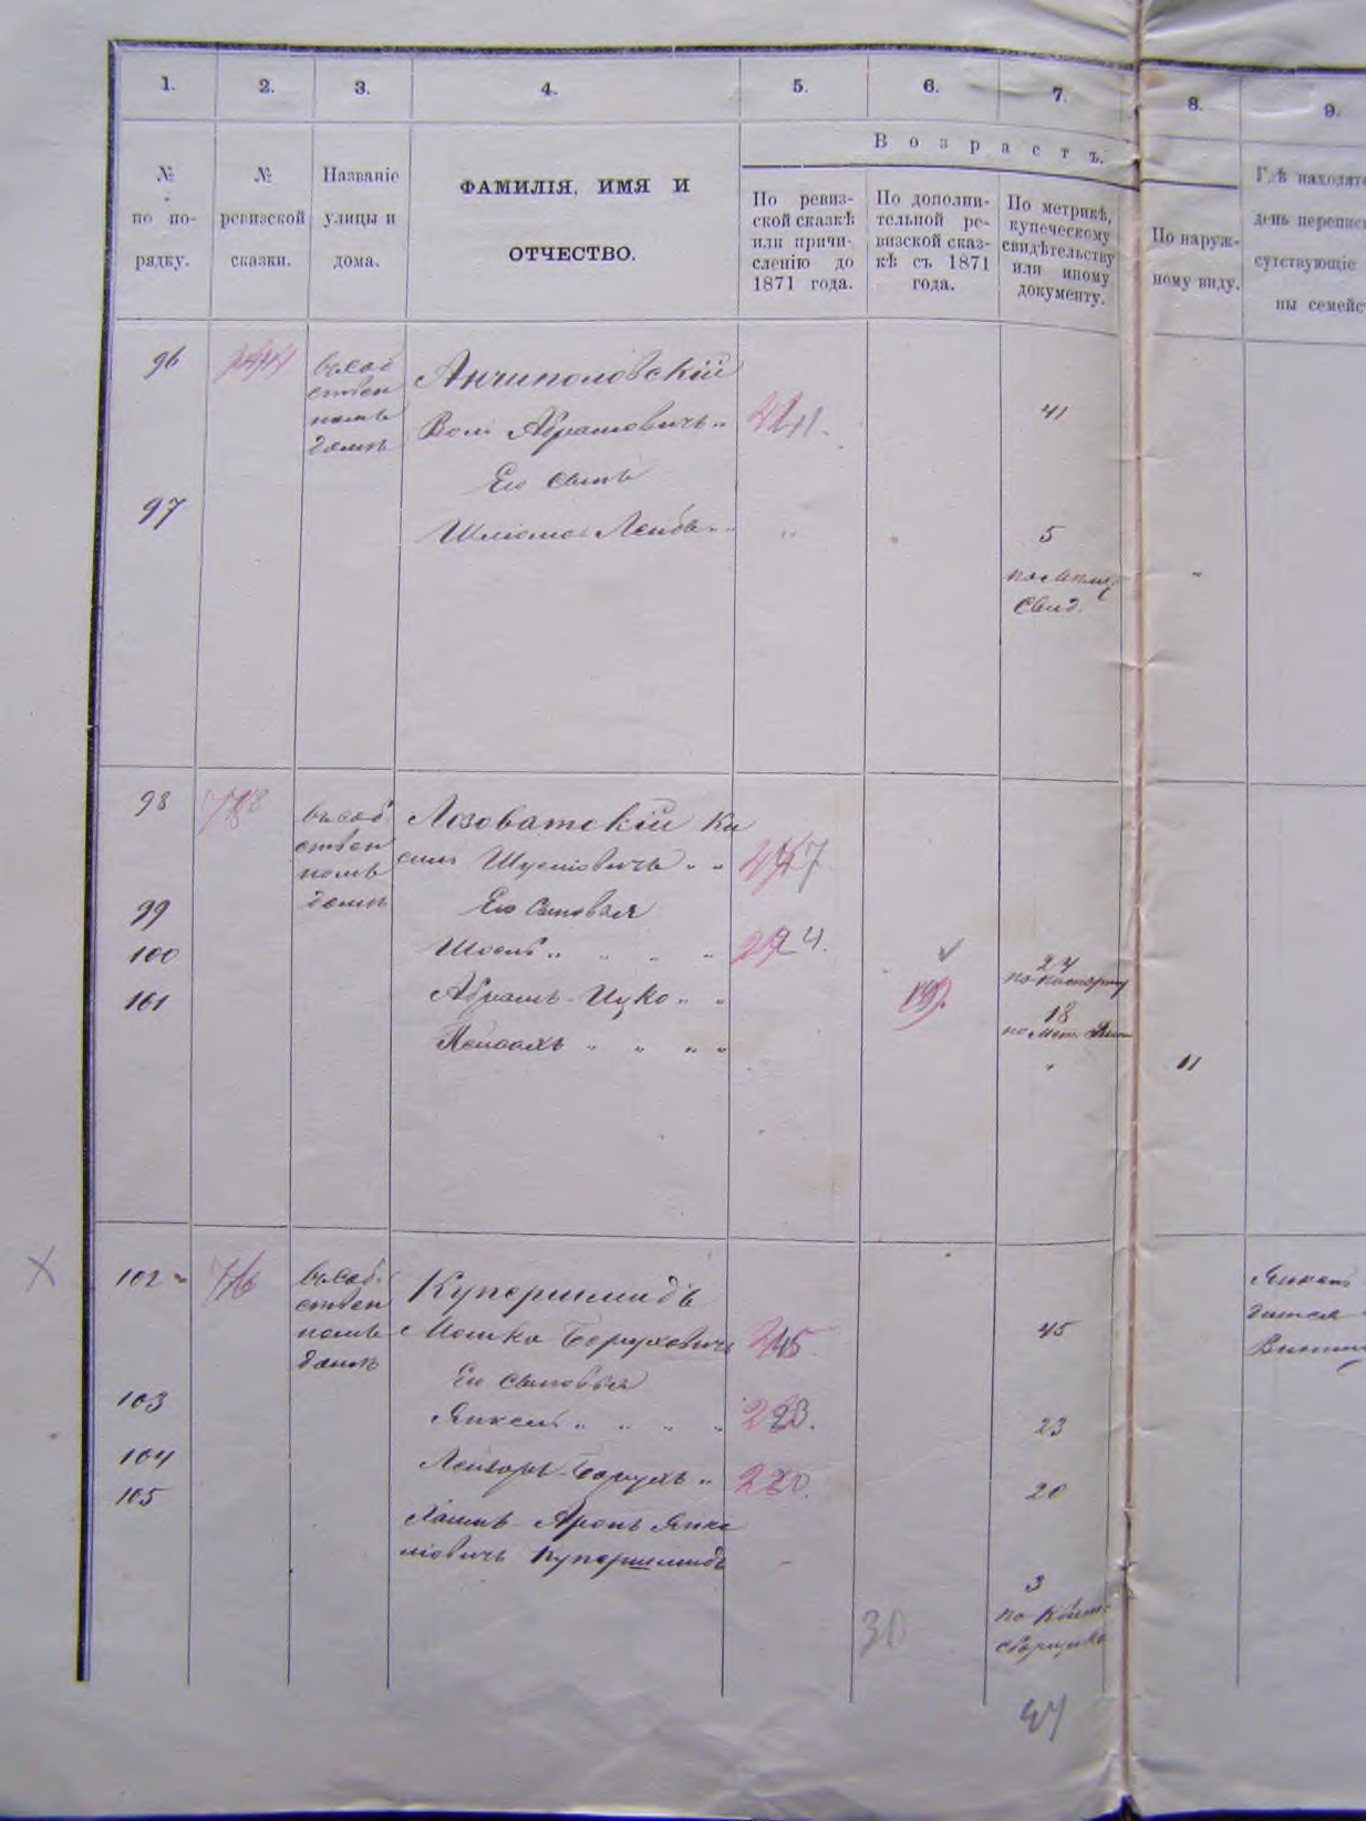 1. 2. 3. 4. 5. 6. 7. 8. 9.
Возрастъ.
№ по порядку.
№ ревизской сказки.
Названіе улицы и дома.
ФАМИЛІЯ, ИМЯ И
ОТЧЕСТВО.
По ревиз-
ской сказкѣ
или причи-
сленію до
1871 года.
По дополни-
тельной ре-
визской сказ-
кѣ съ 1871
года.
По метрикѣ,
купеческому
свидѣтельству
или иному
документу.
По наруж-
ному виду.
Гдѣ находят
день перепис
сутствующіе
ны семейс
96
въ соб
ствен
номъ
домѣ
Анчиполовскій
Абрамовичъ „
41.
41
Его сынъ
97
Шліома Лейбъ „ „
„
5
Свид.
„
98
78
въ соб
ствен
номъ
домѣ
Лозоватскій Ки
47
99
Его Сыновья
100
24.
24
101
Абрамъ-Ицко „ „
19
18
по Мет.
Пейсахъ „ „ „ „
„
11
102
76
въ соб
ствен
номъ
домѣ
Купершмидъ
Мошко Борухович
45
45
Его Сыновья
103
Янкель „ „ „ „
23.
23
104
Лейзоръ-Борухъ „
20.
20
105
Хаимъ-Аронъ Янке
ліовичъ Купершмидъ
-
3
30
Янкель